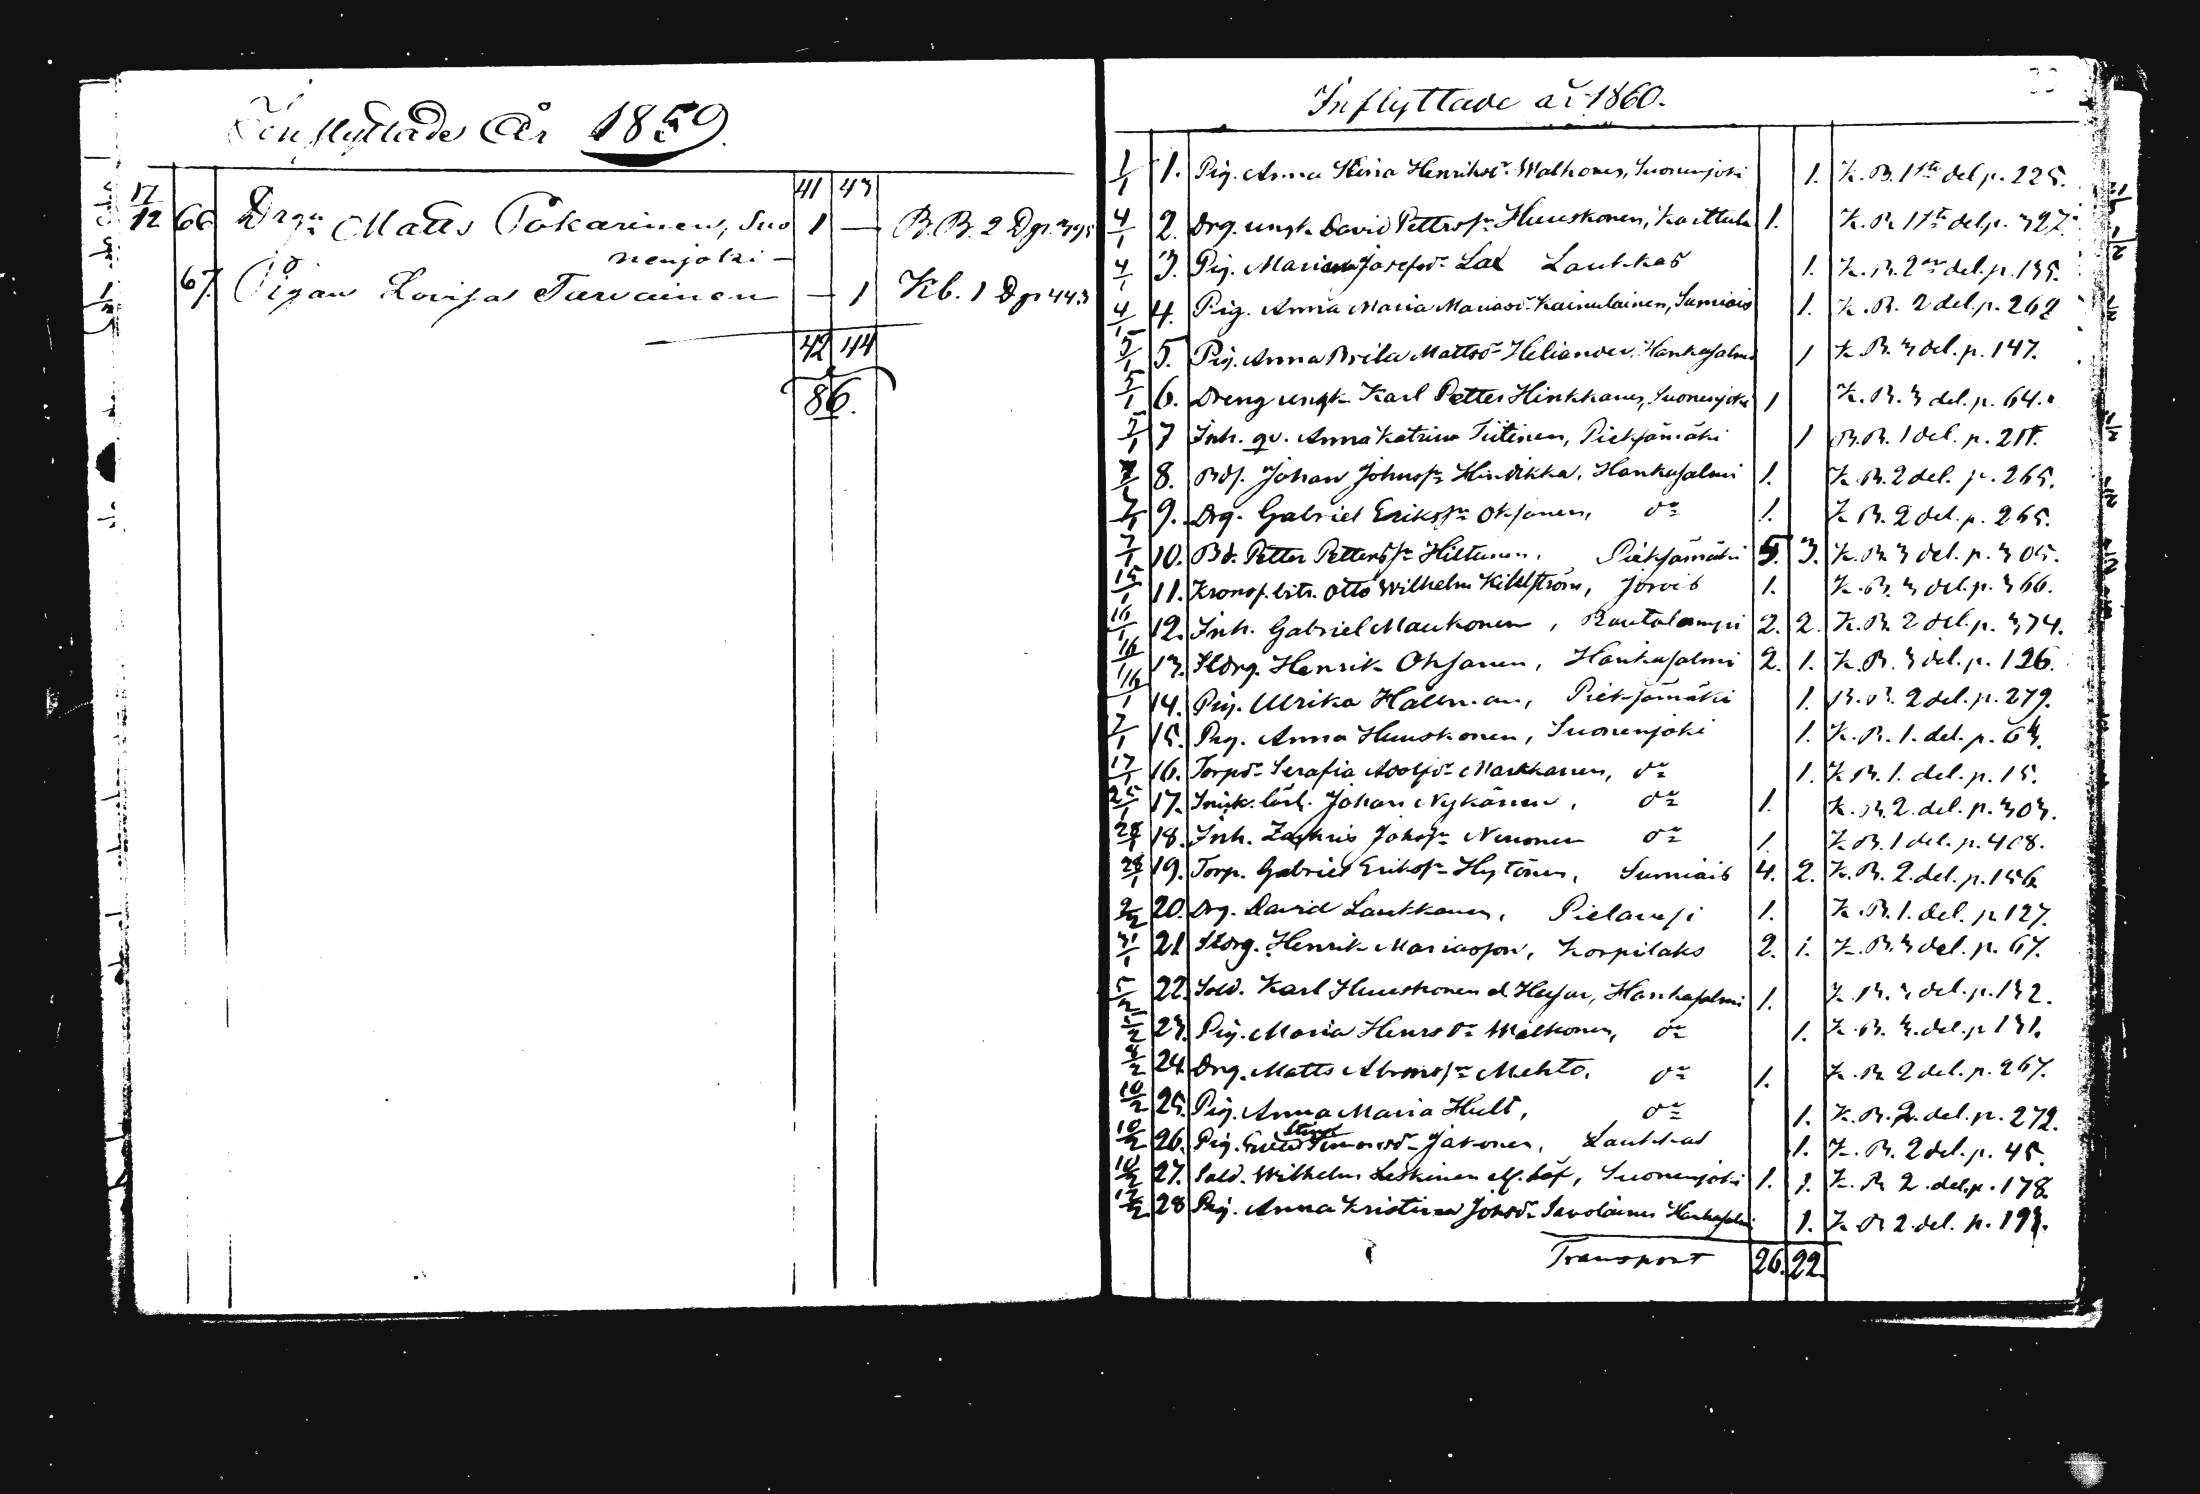 Inflyttade År 1859.
41 43
17/12 66 Drgn Matts Pakarinen, Suo 1 — B.B. 2 D p. 395
nenjoki —
67. Pigan Lovisa Tarvainen — 1 Kb. 1 D p 443
42 44
86.
Inflyttade år 1860.
1/1 1. Pig. Anna Stina Henriksdr Walkonen, Suonenjoki 1. K.B. 1sta del p. 225.
4/1 2. Drg. ungk. David Pettersn Huuskonen, Karttula 1. K.B. 1sta del p. 327.
4/1 3. Pig. Mariana Josefsdr Lax Laukkas 1. K.B. 2dra del. p. 135.
4/1 4. Pig. Anna Maria Mariasdr Kainulainen, Sumiais 1. K.B. 2 del. p. 262
5/1 5. Pig. Anna Brita Mattsdr Heliander, Hankasalmi 1 K.B. 3 del. p. 147.
5/1 6. Dreng ungk. Karl Petter Hinkkanen, Suonenjoki 1 K.B. 3 del. p. 64.
5/1 7 Inh. qv. Anna Katrina Tiitinen, Pieksämäki 1 B.B. 1 del. p.
8. Bds. Johan Johnssn Hindikka, Hankasalmi 1. K.B. 2 del. p. 265.
7/1 9. Drg. Gabriel Erikssn Oksanen, do 1. K.B. 2 del. p. 265.
7/1 10. Bd. Petter Petterssn Hiltunen, Pieksämäki 5. 3. K.B. 3 del. p. 305.
15/1 11. Kronof. bitr. Otto Wilhelm Kihlström, Jorois 1. K.B. 3 del. p. 366.
16/1 12. Inh. Gabriel Maukonen, Rautalampi 2. 2. K.B. 2 del. p. 374.
16/1 13. Stdrg. Henrik Oksanen, Hankasalmi 2. 1. K.B. 3 del. p. 126.
16/1 14. Pig. Ulrika Hallman, Pieksämäki 1. B.B. 2 del. p. 279.
7/1 15. Pig. Anna Huuskonen, Suonenjoki 1. K.B. 1. del. p. 63.
17/1 16. Torpdr Serafia Adolfsdr Markkanen, do 1. K.B. 1. del. p. 15.
25/1 17. Snick. lärl. Johan Nykänen, do 1. K.B. 2. del. p. 303.
28/1 18. Inh. Zachris Johssn Nenonen do 1. K.B. 1 del. p. 408.
28/1 19. Torp. Gabriel Erikssn Hytönen, Sumiais 4. 2. K.B. 2. del. p. 156
2/2 20. Drg. David Laukkanen, Pielavesi 1. K.B. 1. del. p 127.
31/1 21 Stdrg. Henrik Mariasson, Korpilaks 2. 1. K.B. 3 del. p. 67.
5/2 22. Sold. Karl Huuskonen Hankasalmi 1. K.B. 3 del. p. 132.
23. Pig. Maria Henrsdr Walkonen, do 1. K.B. 3. del. p 131.
8/2 24 Drg. Matts Abramssn Mehto, do 1. K.B. 2 del. p. 267.
10/2 25. Pig. Anna Maria Hult, do 1. K.B. 2. del. p. 272.
10/2 26. Pig. Stina Simonsdr Jakonen, Laukkas 1. K.B. 2 del. p. 45.
10/2 27. Sold. Wilhelm Leskinen Suonenjoki 1. 1. K.B. 2 del. p. 178.
12/2 28 Pig. Anna Kristina Johsdr Savolainen Hankasalmi 1. K.B. 2. del. p. 193.
Transport 26. 22